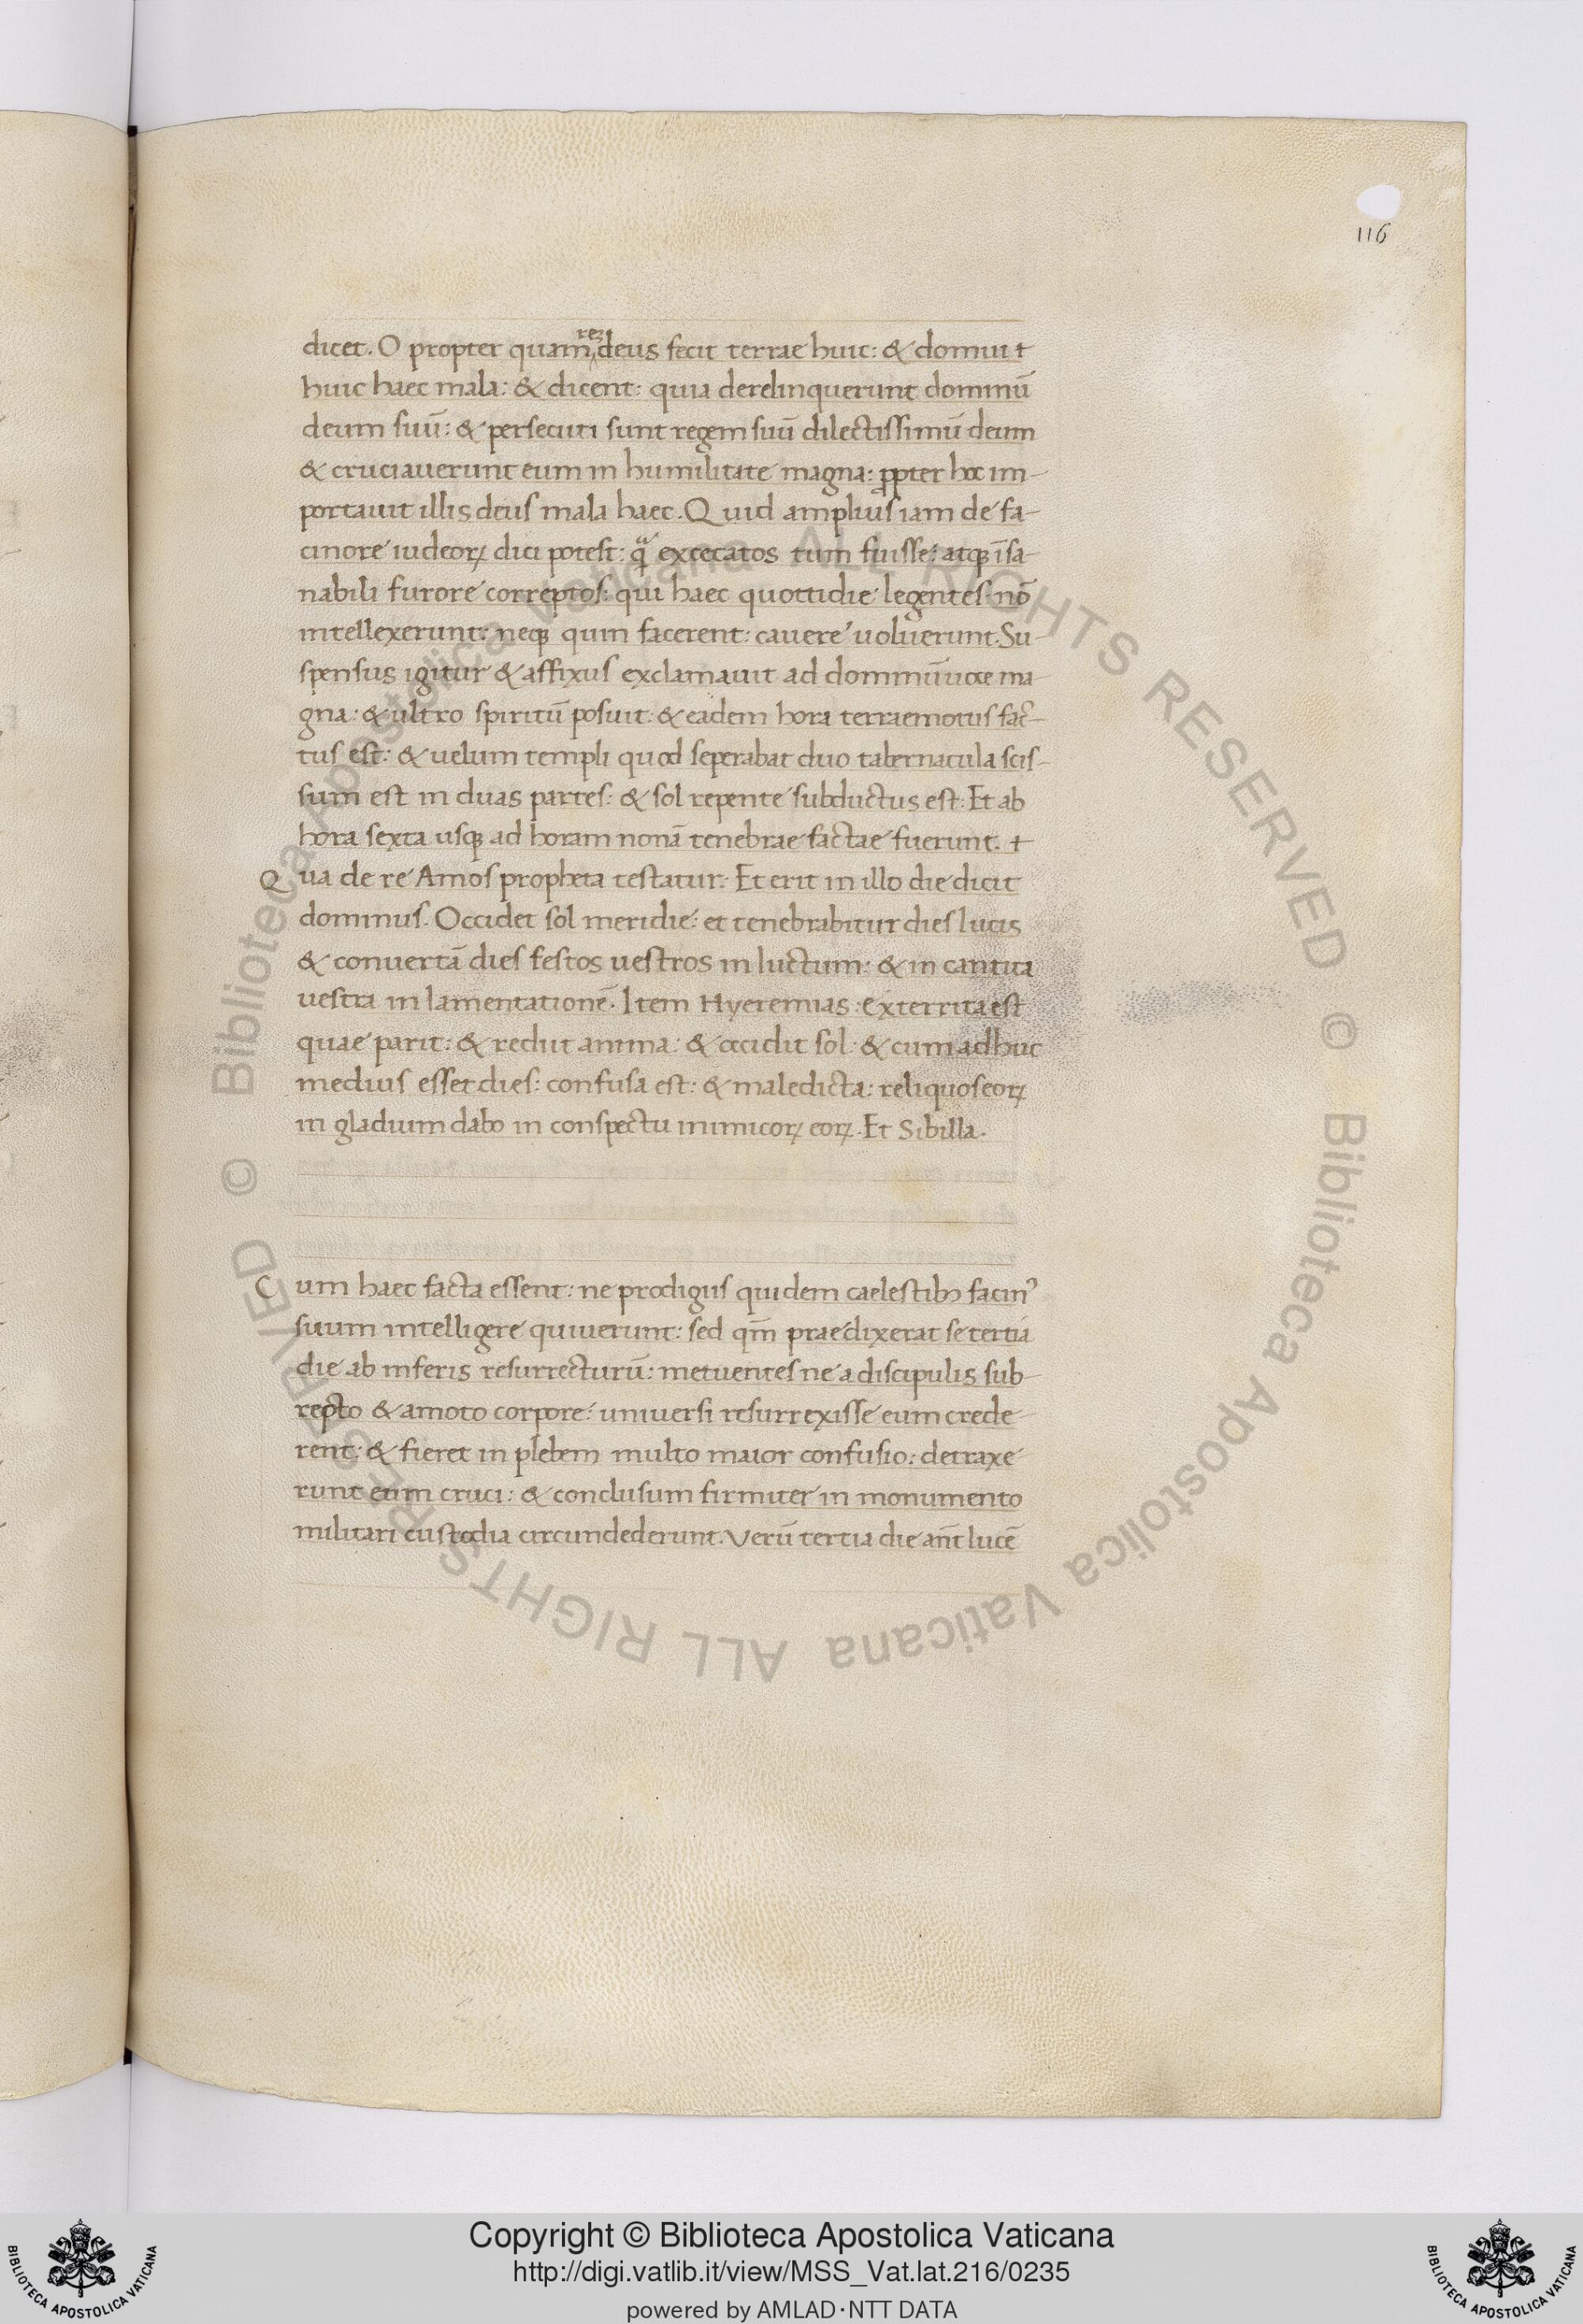 116
dicet. O propter quam reʒ deus fecit terrae huic: & domui ꞇ
huic haec mala: & dicent: quia derelinquerunt dominū
deum suū: & persecuti sunt regem suū dilectissimū deum
& cruciauerunt eum in humilitate magna: ꝓpter hoc im-
portauit illis deus mala haec. Quid amplius iam de fa-
cinore iudeoꝝ dici potest: qͣ̃ excecatos tum fuisse: atqꝫ īsa-
nabili furore correptos: qui haec quottidie legentes nō
intellexerunt: neqꝫ quin facerent: cauere uoluerunt. Su-
spensus igitur & affixus exclamauit ad dominū uoce ma-
gna: & ultro spiritū posuit: & eadem hora terraemotus fac-
tus est: & uelum templi quod seperabat duo tabernacula scis-
sum est in duas partes: & sol repente subductus est: Et ab
hora sexta usqꝫ ad horam nonā tenebrae factae fuerunt. ꞇ
Qua de re Amos propheta testatur. Et erit in illo die dicit
dominus. Occidet sol meridie: et tenebrabitur dies lucis
& conuertā dies festos uestros in luctum: & in cantica
uestra in lamentationē. Item Hyeremias: Exterrita est
quae parit: & rediit anima: & occidit sol: & cum adhuc
medius esset dies: confusa est: & maledicta: reliquos eoꝝ
in gladium dabo in conspectu inimicoꝝ eoꝝ. Et Sibilla.
Cum haec facta essent: ne prodigiis quidem caelestibꝫ facinꝰ
suum intelligere quiuerunt: sed qm̄ praedixerat se tertia
die ab inferis resurrecturū: metuentes ne a discipulis sub-
repto & amoto corpore: uniuersi resurrexisse eum crede-
rent: & fieret in plebem multo maior confusio: detraxe-
runt eum cruci: & conclusum firmiter in monumento
militari custodia circundederunt. Verū tertia die an̄t lucē
Copyright © Biblioteca Apostolica Vaticana
http://digi.vatlib.it/view/MSS_Vat.lat.216/0235
powered by AMLAD·NTT DATA
BIBLIOTECA APOSTOLICA VATICANA
BIBLIOTECA APOSTOLICA VATICANA
© Biblioteca Apostolica Vaticana ALL RIGHTS RESERVED © Biblioteca Apostolica Vaticana ALL RIGHTS RESERVED